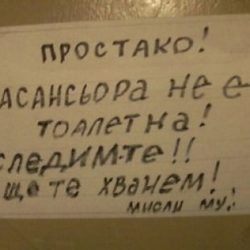 ПРОСТАКО!
АСАНСЬОРА НЕ Е
ТОАЛЕТНА!
СЛЕДИМ-ТЕ!!
ЩЕ ТЕ ХВАНЕМ!
МИСЛИ МУ!